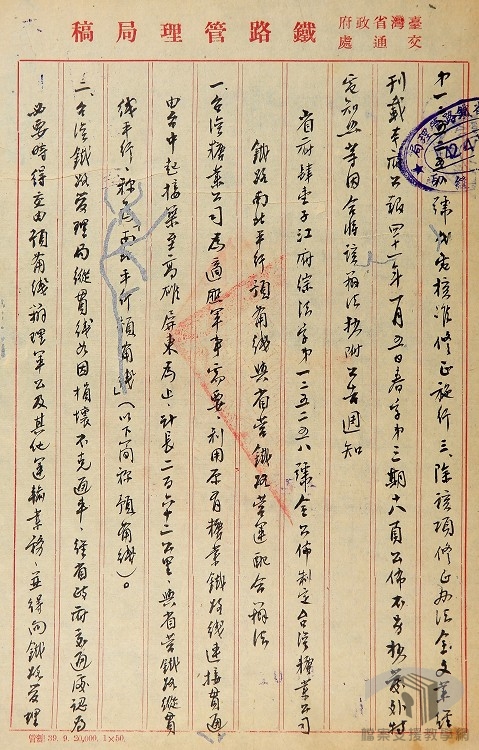 臺灣省政府交通處
鐵路管理局稿
號 核准修正施行三、除該項修正办法全文業經
刊載本府公報四十一年一月五日春字第三期十八頁公佈不另抄發外特
電知照等因合將該辦法抄附公告週知
省府肆壹子江府綜法字第一二五二五八號令公佈制定台灣糖業公司
鐵路南北平行預備綫與省營鐵路營運配合辦法
一、台灣糖業公司為適應軍事需要、利用原有糖業鐵路綫連接貫通
由台中起接築至高雄屏東為止、計長二百六十二公里、與省營鐵路縱貫
綫平行、稱為「南北平行預備綫」（以下簡稱預備綫）。
二、台灣鐵路管理局縱貫綫如因損壞不克通車、經省政府交通處認為
必要時得交由預備綫辦理軍公及其他運輸業務、並得向鐵路管理
管總 39. 9. 20,000. 1×50.
檔案支援教學網